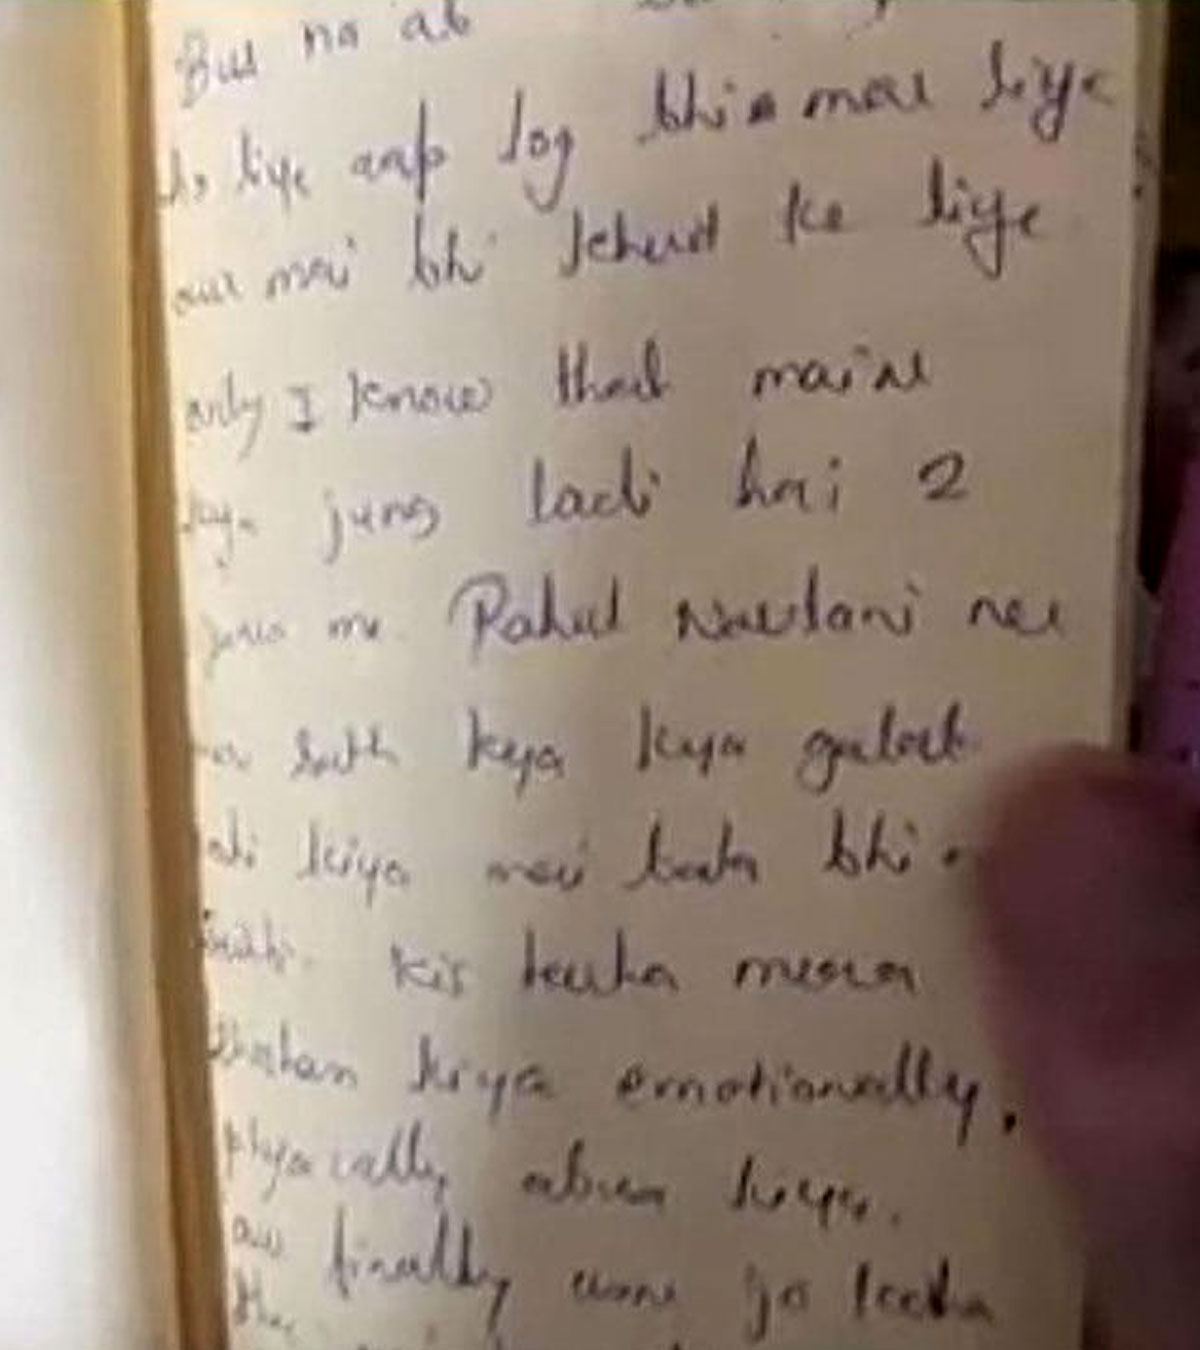 But no ab
liye aap log bhi mere liye
aur mai bhi khud ke liye
only I know that maine
kya jung ladi hai 2
years me Rahul Navlani ne
sath kya kya galat
nhi kiya mai bata bhi
sakti. Kis tarha mera
kiya emotionally,
physically abuse kiya.
aur finally usne jo kaha